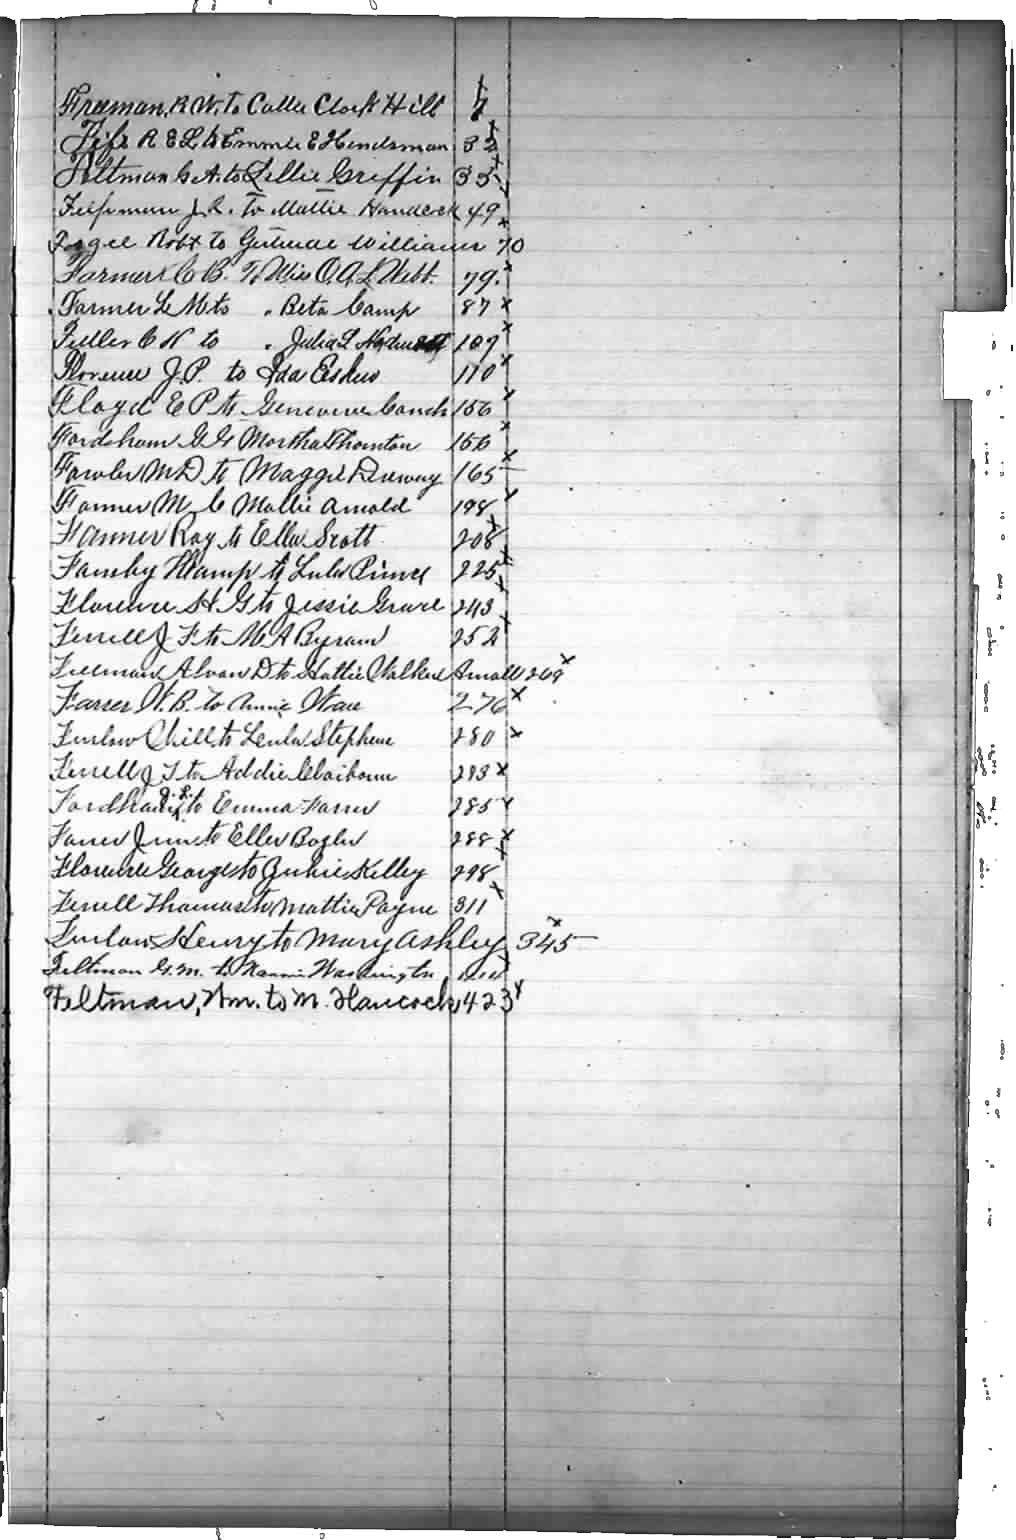 Freeman, R. W. to Callie Clark Hill 7
Fife R E L to Emmie E Hendsman 32
Feltman G. A. to Lellie Griffin 35
J. R. to Mattie Handcock 49
Robt to Williams 70
Farmer C B. To Miss O. A. L. Webb. 79.
Farmer L M to " Beta Camp 87
Fuller C N to " Julia L 109
Florence J. P. to Ida Eskew 110
Floyd E P to Genevieve Couch 156
Fordsham G G Mortha Thornton 156
Fowler M D to Maggie 165
Farmer M C Mollie Arnold 198
Fanner Roy to Ella Scott 208
Hamp to Lula Prince 225
Florence H G to Jessie Grace 243
Ferrell J F to M A Byram 252
Freeman Alvan D to Hattie Walker Arnall 269
Farrer W. B. to Annie Ware 276
Furlow Chill to Leula Stephens 280
Ferrell J T to Addie Claiborn 283
Fordham J. R. to Emma Farrer 285
Farrer June to Ella 288
Florence George to Kelley 298
Ferrell Thomas to Mattie Payne 311
Furlow Henry to Mary Ashley 345
Feltman G. M. to Nannie Washington
Feltman, Wm. to M. Hancock 423